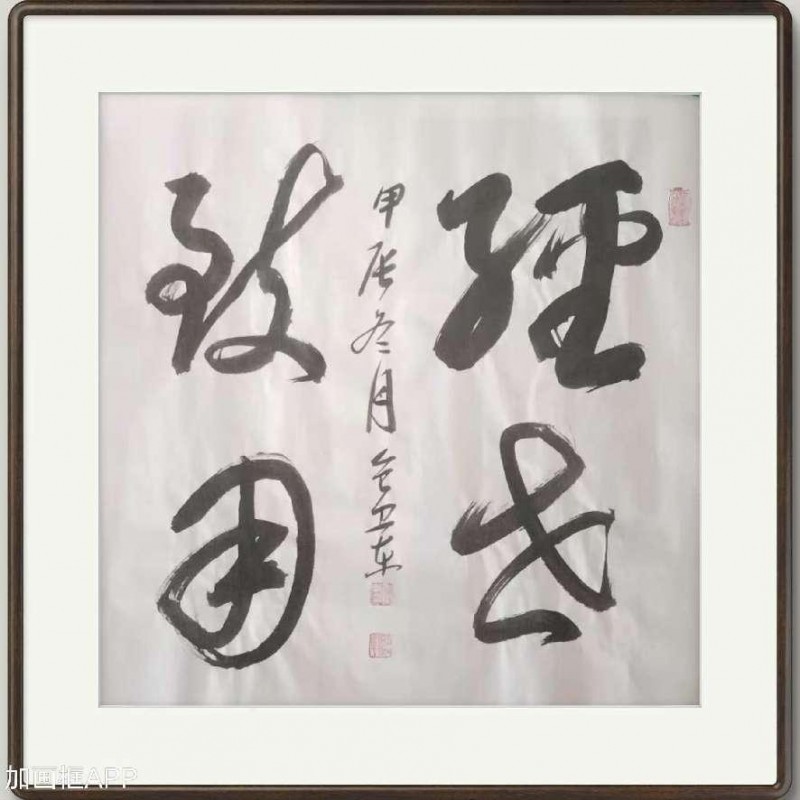 經世
致用
甲辰冬月
卫东
加画框APP